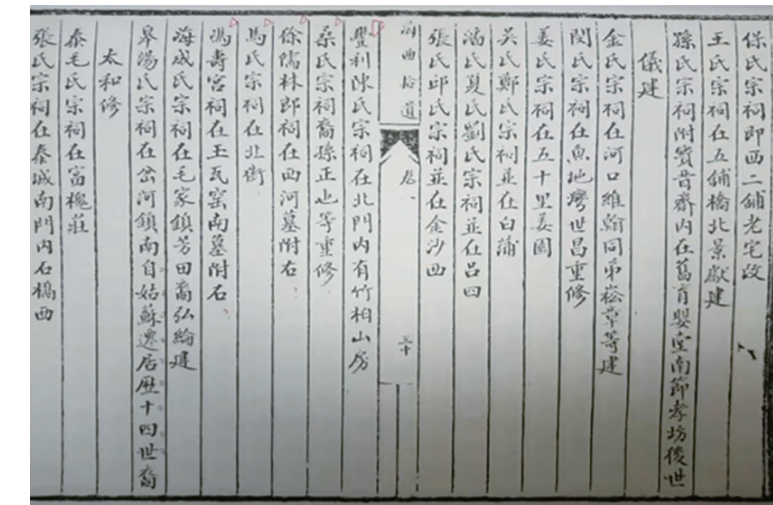 保氏宗祠即西二舖老宅改
王氏宗祠在五舖橋北景獻建
孫氏宗祠附賓昔齋內在舊育嬰堂南節孝坊後世
儀建
金氏宗祠在河口維翰同弟崧章等建
閔氏宗祠在魚池灣世昌重修
姜氏宗祠在五十里姜園
吳氏鄭氏宗祠並在白蒲
馮氏夏氏劉氏宗祠並在呂四
張氏邱氏宗祠並在金沙西
海曲拾遺
卷一
三十
豐利陳氏宗祠在北門內有竹柏山房
桑氏宗祠裔孫正也等重修
徐儒林郎祠在西河墓附右
馬氏宗祠在北街
馮壽宮祠在玉瓦窑南墓附右
海成氏宗祠在毛家鎮芳田裔弘綸建
皋陽氏宗祠在岔河鎮南自姑蘇遷居歷十四世裔
太和修
泰毛氏宗祠在富槐莊
張氏宗祠在泰城南門內石橋西